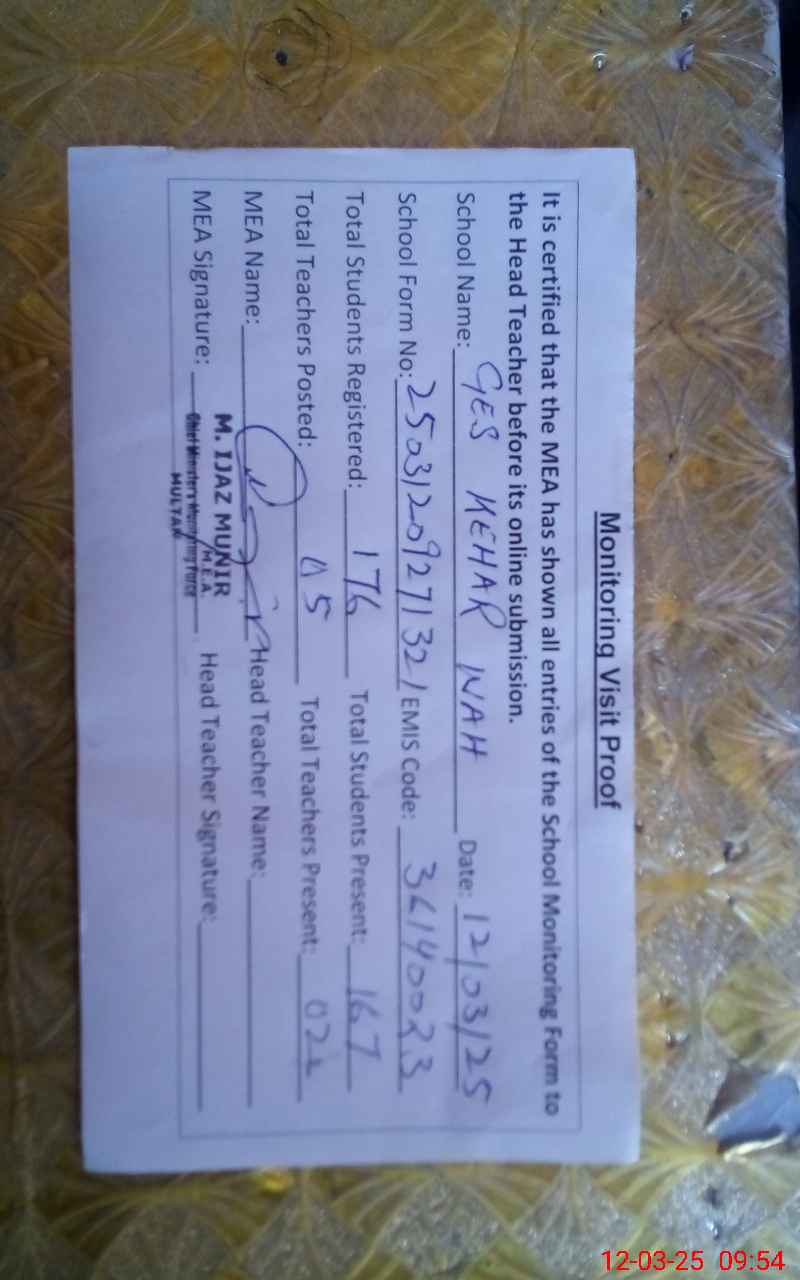 Monitoring Visit Proof
It is certified that the MEA has shown all entries of the School Monitoring Form to
the Head Teacher before its online submission.
School Name: GES KEHAR WAH Date: 12/03/25
School Form No: 25031209271321 EMIS Code: 36140023
Total Students Registered: 176 Total Students Present: 167
Total Teachers Posted: 05 Total Teachers Present: 02
MEA Name: Head Teacher Name:
M. IJAZ MUNIR
M.E.A.
MEA Signature: Chief Minister's Monitoring Force Head Teacher Signature:
MULTAN
12-03-25 09:54